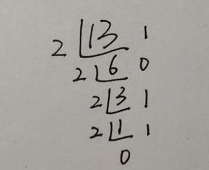 2 13 1
2 6 0
2 3 1
2 1 1
0